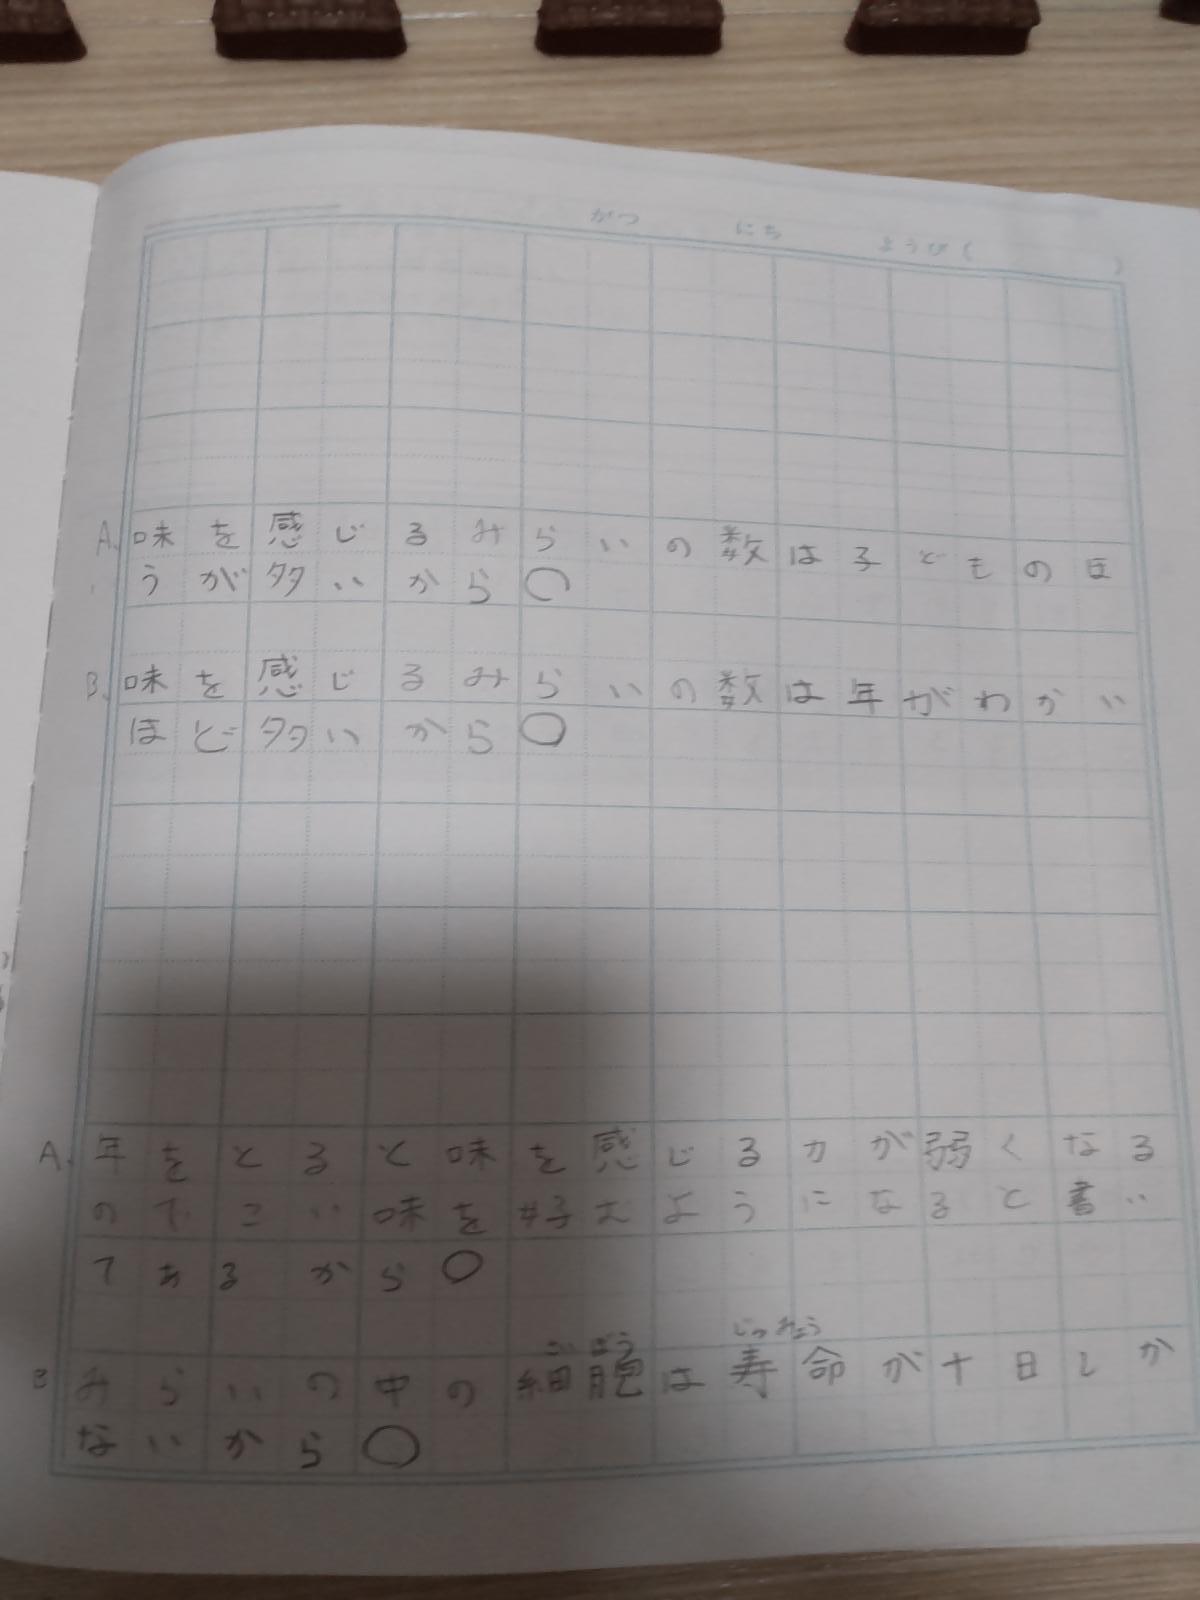 がつ にち ようび( )
A. 味を感じるみらいの数は子どものほ
うが多いから○
B. 味を感じるみらいの数は年がわかい
ほど多いから○
A. 年をとると味を感じる力が弱くなる
のでこい味を好むようになると書い
てあるから○
B みらいの中の細胞は寿命が十日しか
ないから○